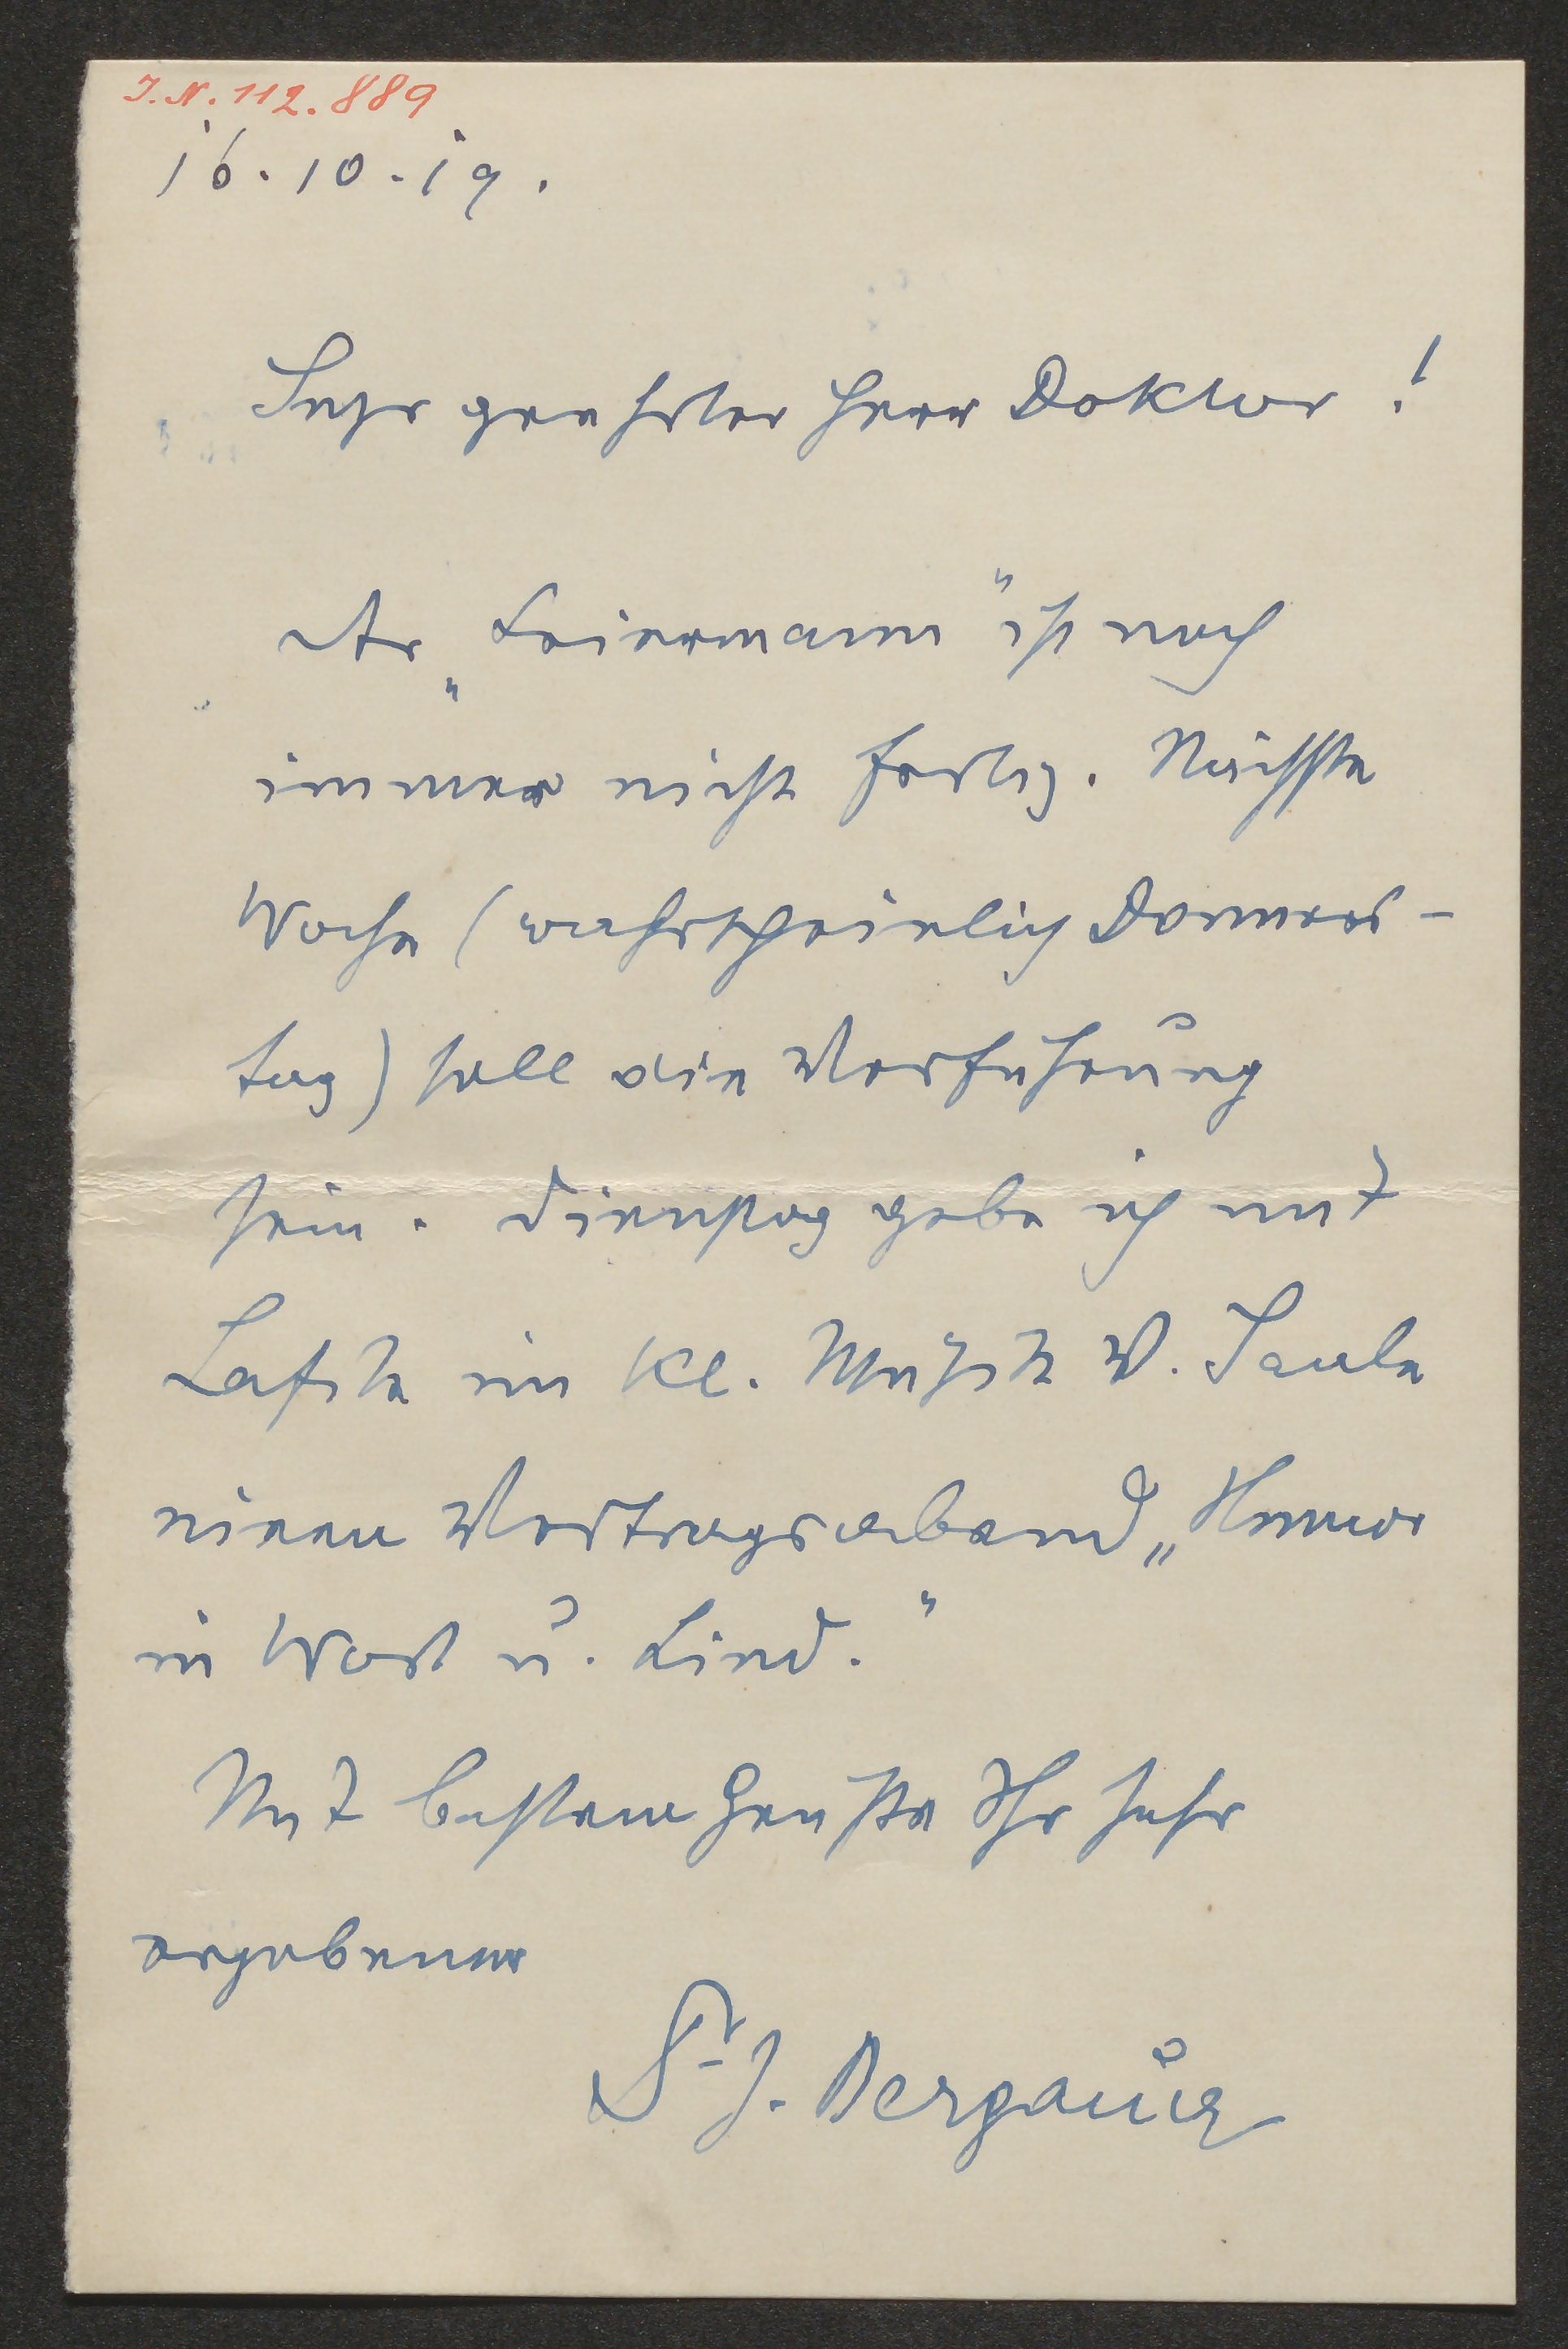 I.N. 112.889
16.10.19.
Sehr geehrter Herr Doktor!
Der „Leiermann" ist noch
immer nicht fertig. Nächste
Woche (wahrscheinlich Donners-
tag) soll die Vorführung
sein. Dienstag gebe ich mit
Lafite im Kl. Musik V. Saale
einen Vortragsabend „Humor
in Wort u. Lied."
Mit bestem Gruße Ihr sehr
ergebener
Dr J. Bergauer